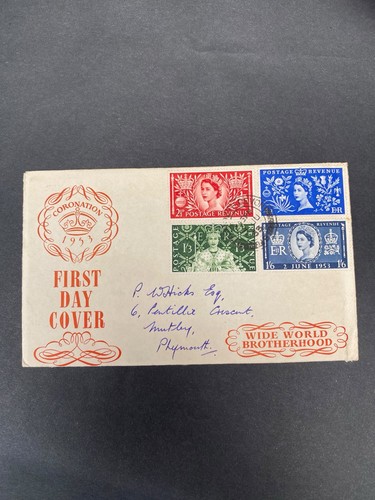 CORONATION
1953
FIRST
DAY
COVER
2½D POSTAGE REVENUE
POSTAGE REVENUE
E R
POSTAGE
1/3
REVENUE
1/3
POSTAGE REVENUE
E R
1/6 2 JUNE 1953 1/6
P. W. Hicks Esq,
6, Pentillie Crescent,
Mutley,
Plymouth.
WIDE WORLD
BROTHERHOOD